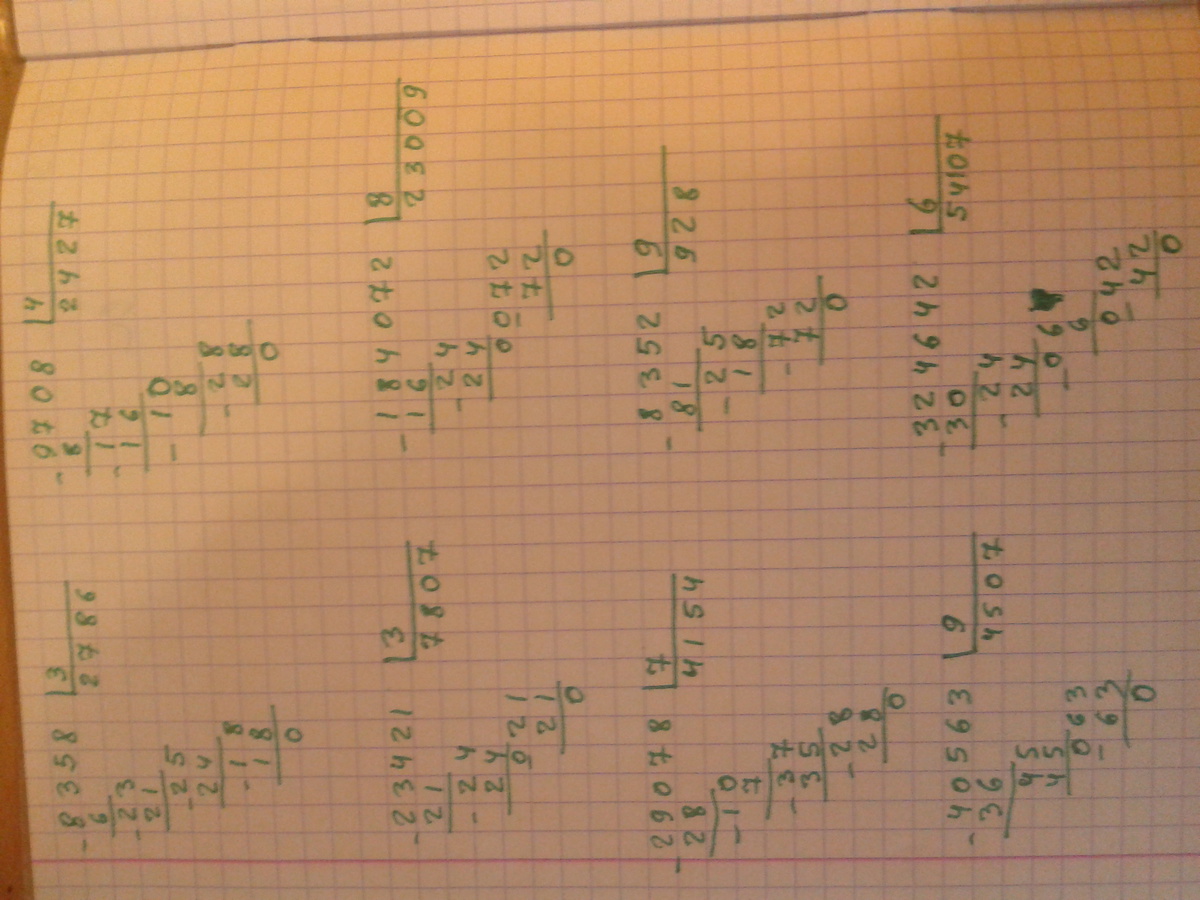 - 8358 |3
6 2786
- 23
21
- 25
24
- 18
18
0
- 9708 |4
8 2427
- 17
16
- 10
8
- 28
28
0
- 23421 |3
21 7807
- 24
24
021
21
0
- 184072 |8
16 23009
- 24
24
0072
- 72
0
- 29078 |7
28 4154
- 10
7
- 37
35
- 28
28
0
- 8352 |9
81 928
- 25
18
- 72
72
0
- 40563 |9
36 4507
45
45
063
- 63
0
- 324642 |6
30 54107
- 24
24
- 06
6
042
- 42
0